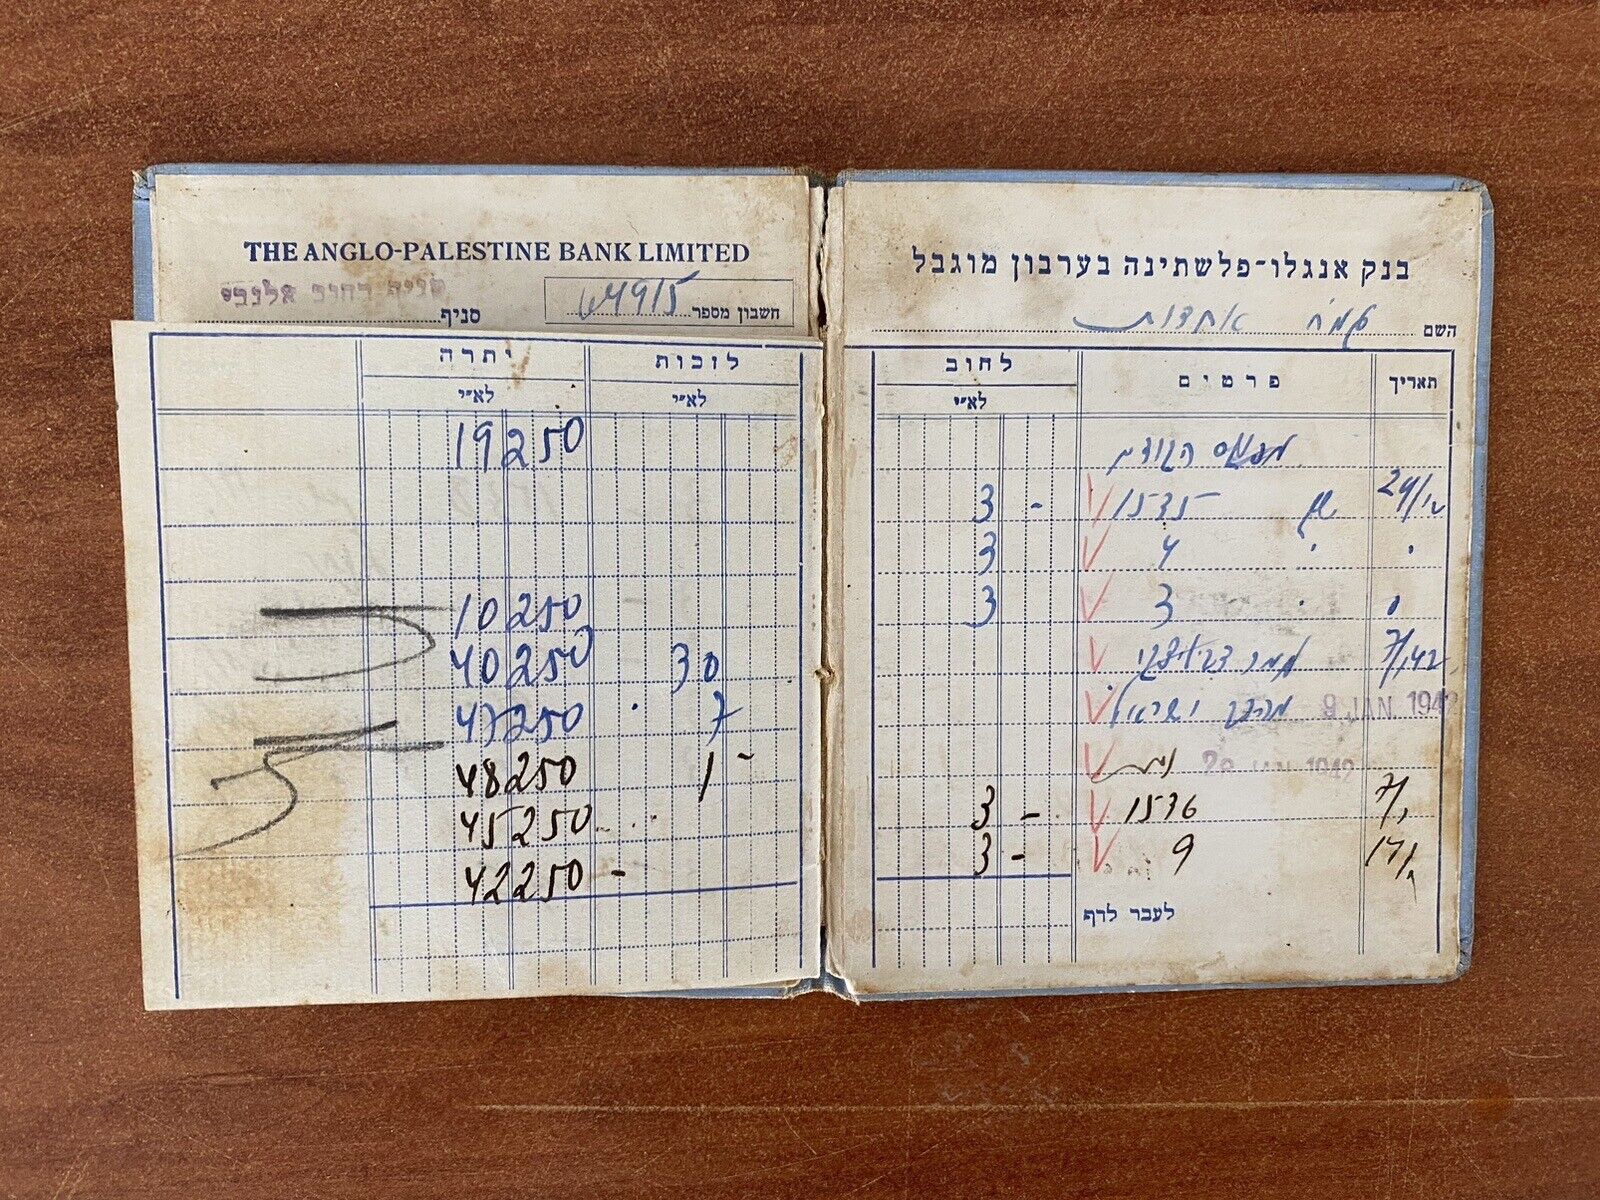 THE ANGLO-PALESTINE BANK LIMITED
בנק אנגלו-פלשתינה בערבון מוגבל
סניף רחוב אלנבי
סניף
חשבון מספר 64915
השם קמח אחדות
תאריך פרטים לחוב לזכות יתרה
לא״י לא״י לא״י
19250
24/12 1535 3 -
" " 4 3
" " 3 3 10250
7/1 42 30 40250
9 JAN 1942 ישראל 7 47250
28 JAN 1942 1 - 48250
7/1 1536 3 - 45250
17/1 9 3 - 42250 -
לעבר לדף